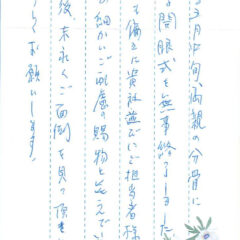 る三月中旬、両親の分骨に
る開眼式を無事終了しました
も偏に貴社並びにご担当者様
の細かいご配慮の賜物と考えてい
後、末永くご面倒を見て頂き
しくお願いします!